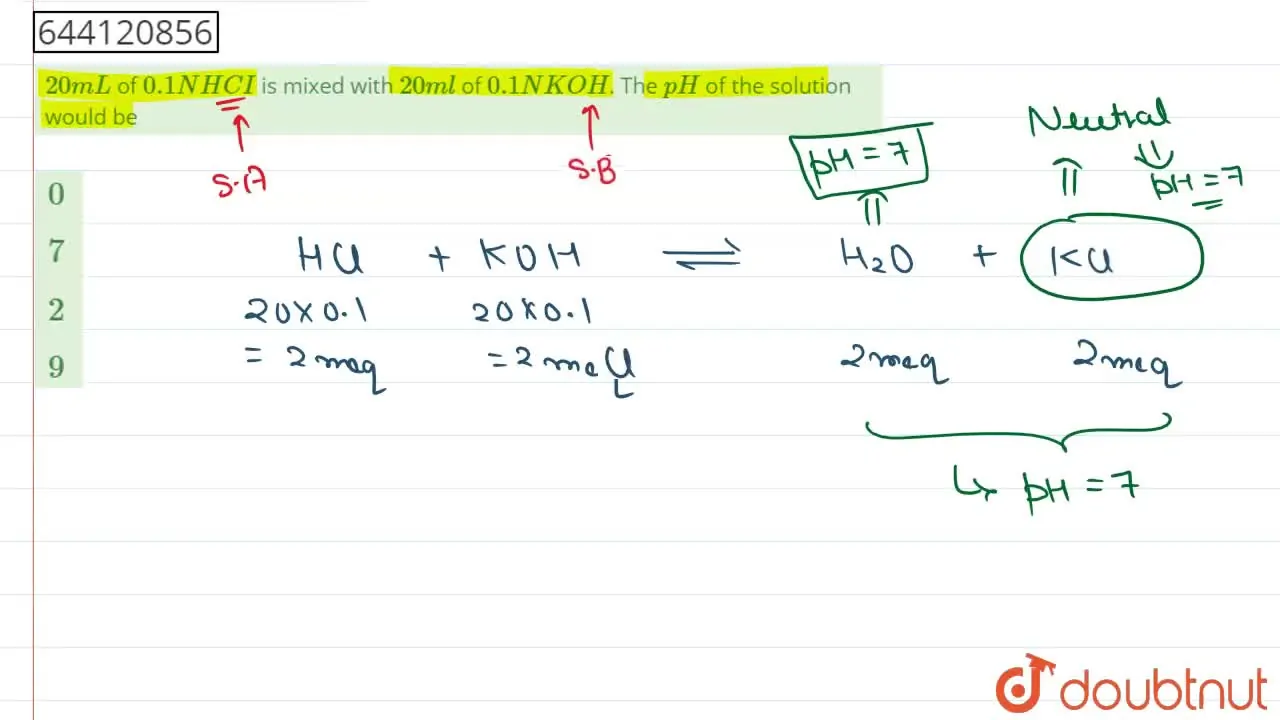 644120856
20mL of 0.1NHCI is mixed with 20ml of 0.1NKOH. The pH of the solution
would be
S.A
S.B
pH = 7
Neutral
pH = 7
0
7
2
9
HCl + KOH ⇌ H2O + KCl
20×0.1 20×0.1
= 2 meq = 2 meq 2 meq 2 meq
↳ pH = 7
doubtnut